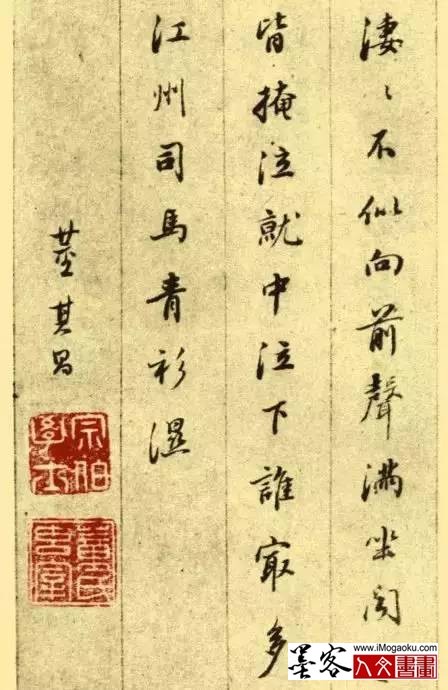 淒〻不似向前聲滿坐闻
皆掩泣就中泣下誰冣多
江州司馬青衫濕
董其昌
宗伯學士
墨客
www.iMogaoku.com
人文書畫